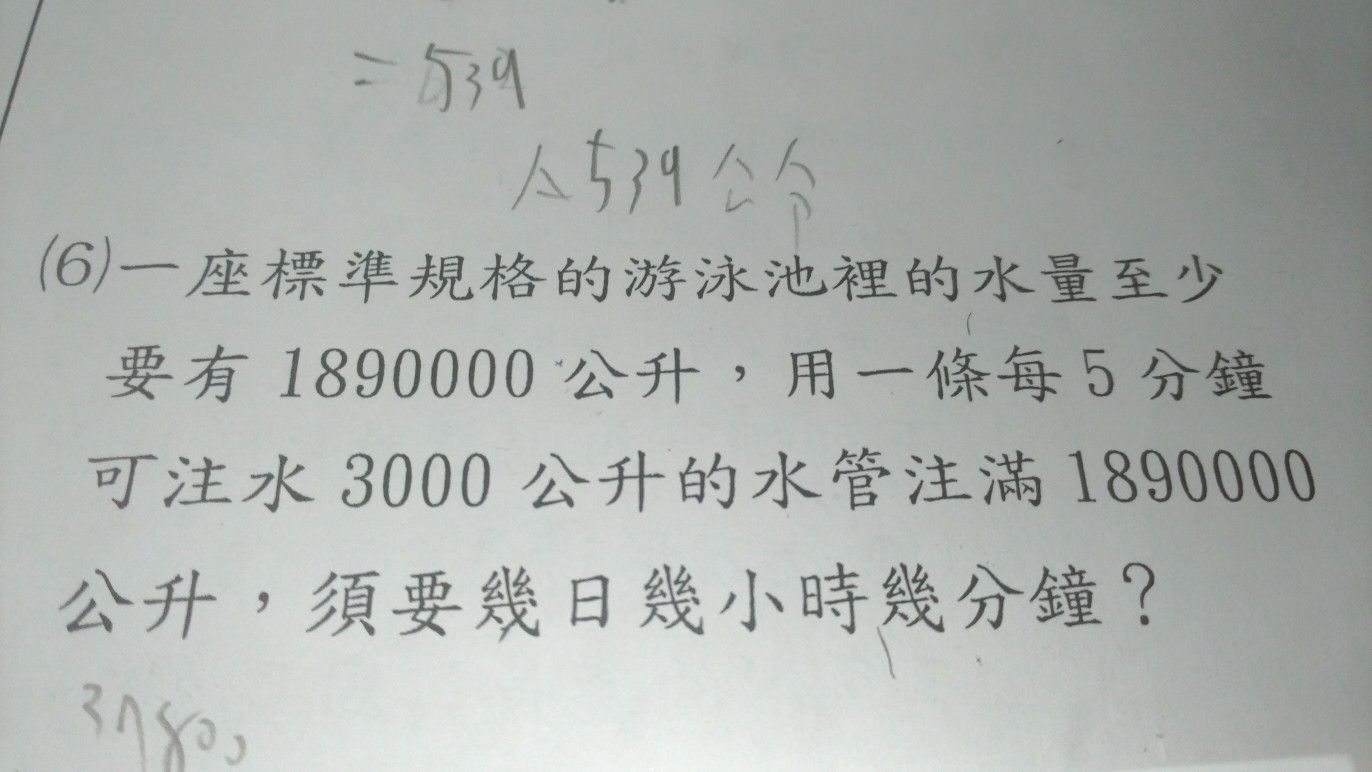 =539
A539公分
(6)一座標準規格的游泳池裡的水量至少
要有1890000公升，用一條每5分鐘
可注水3000公升的水管注滿1890000
公升，須要幾日幾小時幾分鐘？